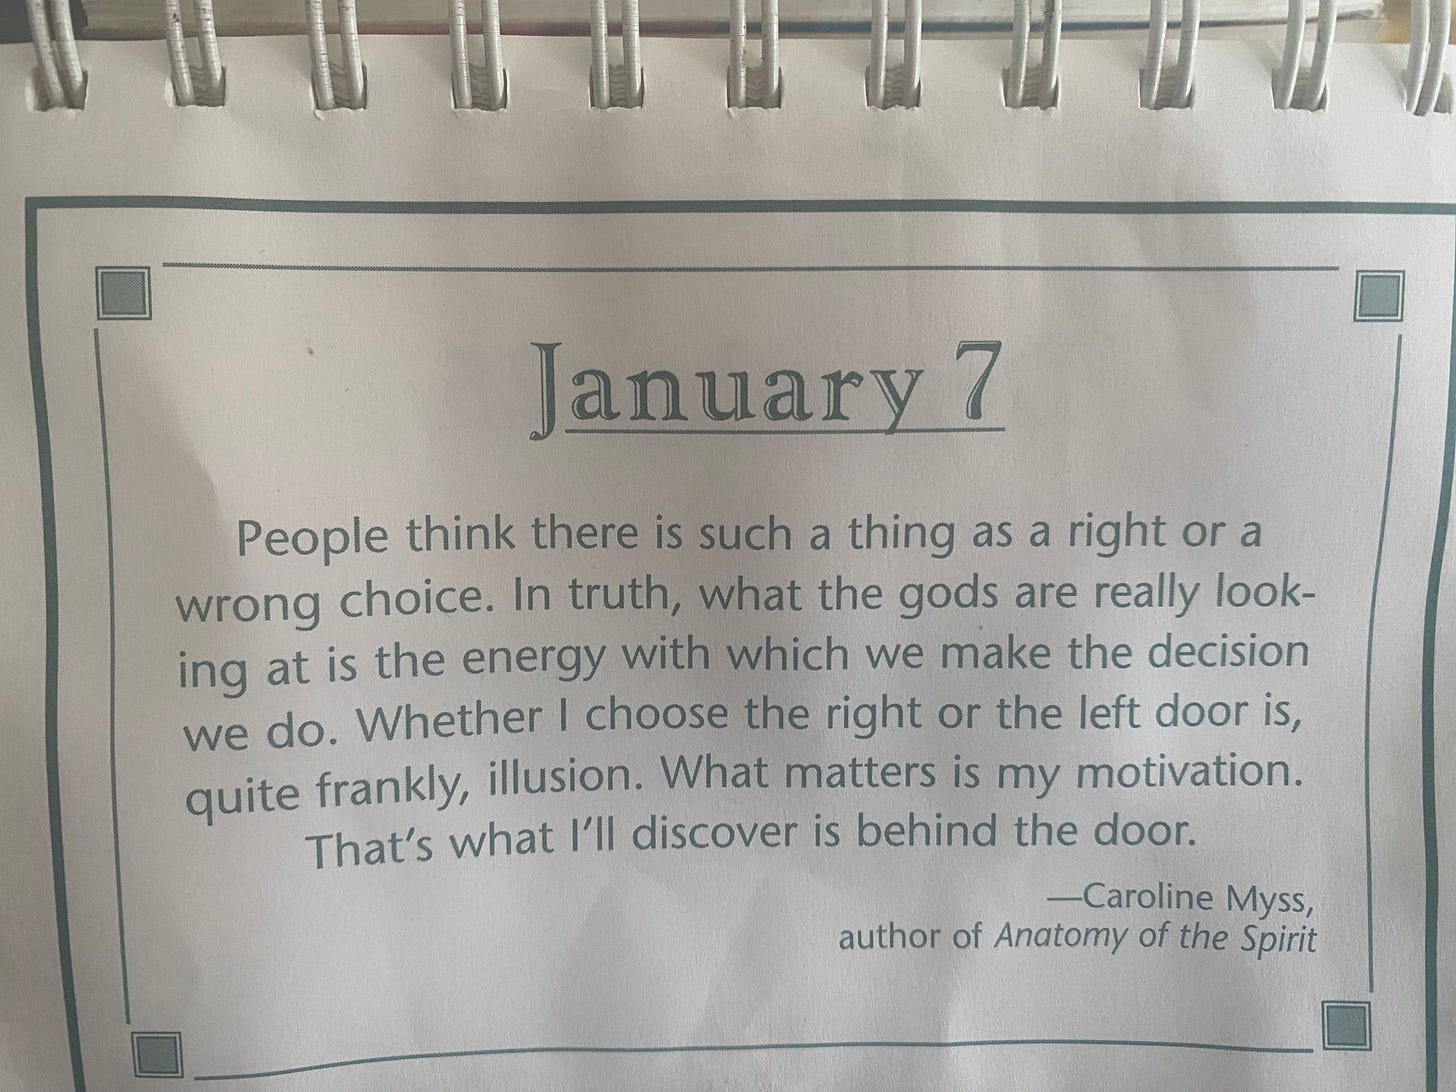 January 7
People think there is such a thing as a right or a
wrong choice. In truth, what the gods are really look-
ing at is the energy with which we make the decision
we do. Whether I choose the right or the left door is,
quite frankly, illusion. What matters is my motivation.
That's what I'll discover is behind the door.
—Caroline Myss,
author of Anatomy of the Spirit